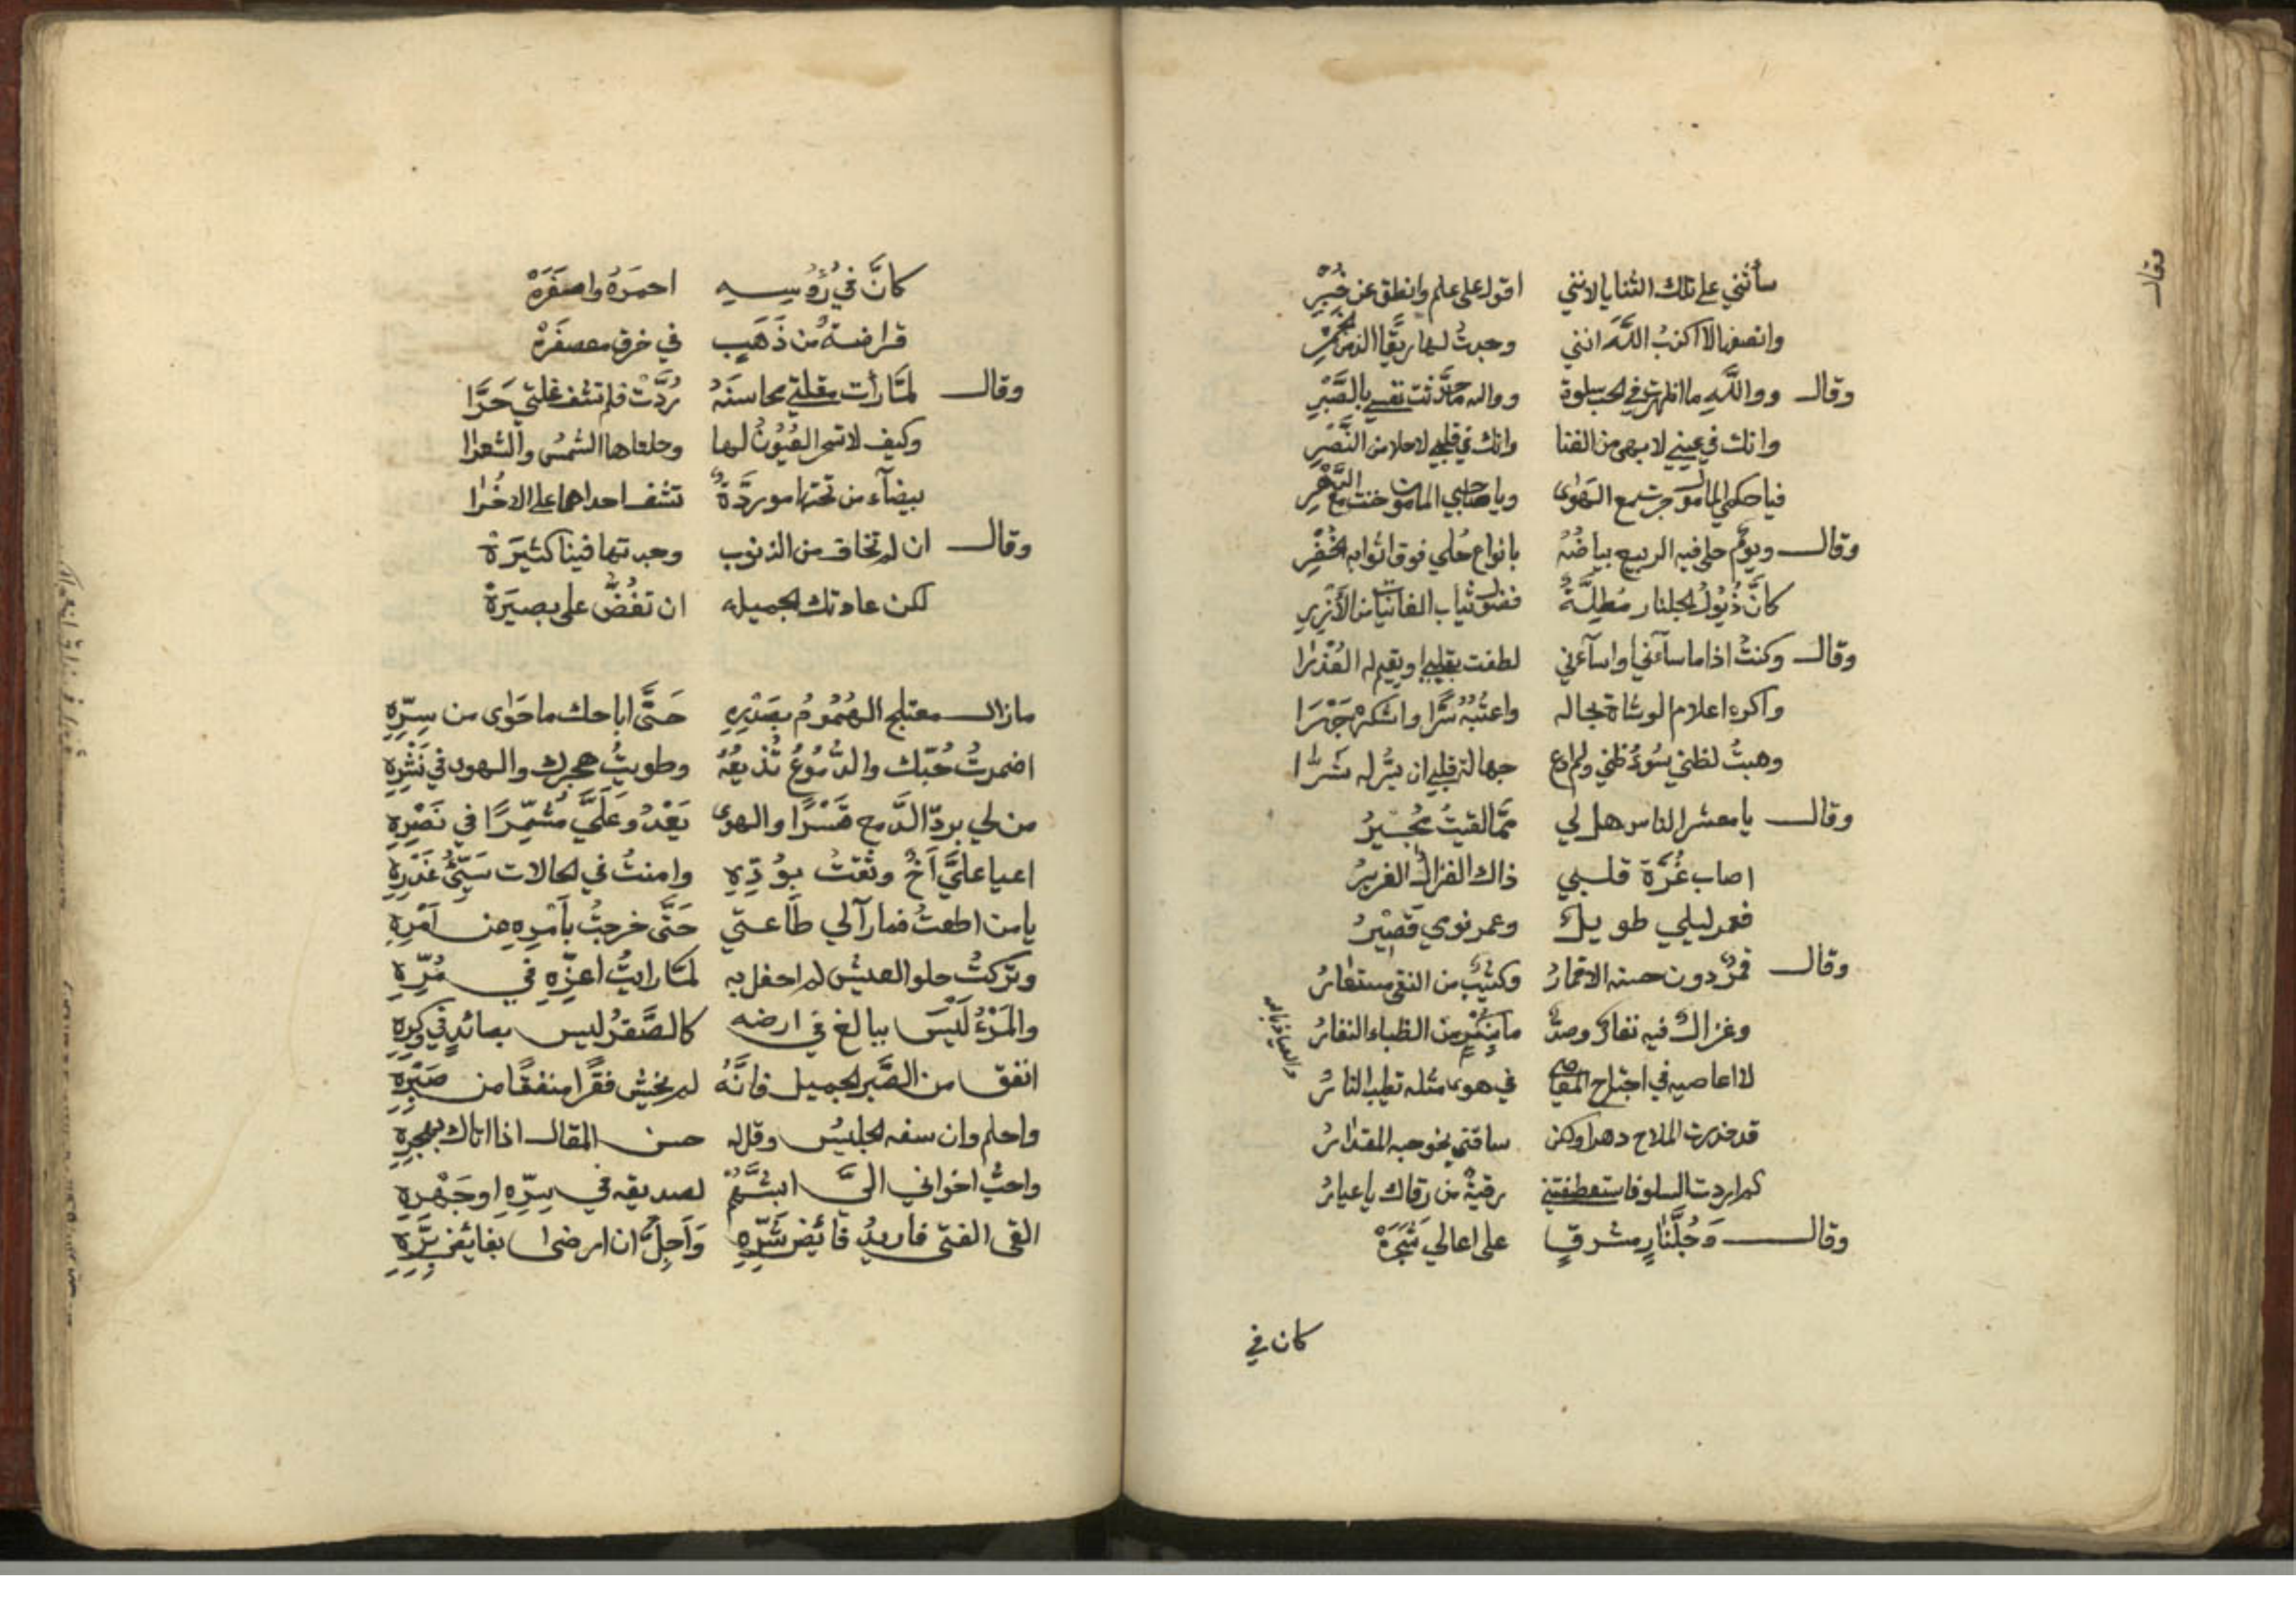 سأثني على تلك الثنايا لانني اقول على علم وانطق عن خُبْرِ
وانصفها لا اكذبُ اللَّهَ انني وجدتُ لها ريقًا الذ من الخمرِ
وقال ووالله ما اظهرت في الحب سلوة ووالله ما حدَّثت نفسي بالصَّبْرِ
وانك في عيني لابهى من الغنا وانك في قلبي لاحلا من النَّصْرِ
فيا حكمي المامول جرت مع الهوى ويا صاحبي المامون خنت مع الدَّهْرِ
وقال ويومٌ حلى فيه الربيع بياضُهُ بانواع حُلي فوق اثوابه الخُضْرِ
كانَّ ذُيُولُ الجلنار مُطِلَّةً فضول ثياب الغانيات من الأُزْرِ
وقال وكنتُ اذا ما ساءني او اساءني لطفت بقلبي او يقيم له العُذْرا
واكره اعلام الوشاة بحاله واعتُبُهُ سِرًّا واشكرهُ جَهْرَا
وهبتُ لظني سُوءُ ظني ولم ادع جهالة قلبي ان يُسِرَّ له شَرَّا
وقال يا معشر الناس هل لي ممَّا لقيتُ مُجِيرُ
اصاب غُرَّة قلبي ذاك الغزالُ الغريرُ
فعمر ليلي طويل وعمر نومي قَصِيْرُ
وقال قمرٌ دون حسنه الاقمارُ وكثيبٌ من النقى مستعارُ
وغزالٌ فيه نفارٌ وصدٌّ ما بنُكْرٍ من الظباء النفارُ
لا اعاصيه في اجتراح المعاصي في هوى مثله تطيب النارُ
والعياذ بالله
قد حذرت الملاح دهرا ولكن ساقني نحو حبه المقدارُ
كم اردت السلو فاستعطفتني رقيةٌ من رقاك يا عيارُ
وقال وَجُلَّنَارٍ مشرقٍ على اعالي شَجَرَهْ
كان في
كانَّ في رُؤُسِهِ احمَرَهُ واصفَرَهْ
قراضةٌ من ذَهَبٍ في خرق معصفَرَهْ
وقال لمَّا رأت مقلتي محاسنَهُ رُدَّتْ فلم تشف غلتي حَرَّا
وكيف لا تسحر العُيُونُ لها وجلتاها الشمسُ والشعرا
بيضاء من تحتها مورَّدةٌ تشف احداهما على الاخْرا
وقال ان لم تخاف من الذنوب وجدتها فينا كثيرَهْ
لكن عادتك الجميله ان تغُضَّ على بصيَرَهْ
ما زال معتلج الهُمُومُ بصَدْرِهِ حَتَّى اباحك ما حَوٰى من سِرِّهِ
اضمرتُ حُبّك والدُّمُوعُ تُذيعُهُ وطويتُ هجرك والهوى في نَشْرِهِ
من لي بردّ الدَّمع قَسْرًا والهوى يَغْدُو عَلَيَّ مُشمِّرًا في نَصْرِهِ
اعيا عليَّ اَخٌ وثقتُ بوُدِّهِ وامنتُ في الحالات سَيِّئُ غَدْرِهِ
يا من اطعتُ فما رآلي طَاعتي حَتَّى خرجتُ بأمْرِهِ عن اَمْرِهِ
وتركتُ حلو العيش لم احفل به لمَّا رايتُ اعزّهِ في مُرِّهِ
والمَرْءُ لَيْسَ ببالغ في ارضه كالصَّقرُ ليس بصائدٍ في وكرِهِ
انفق من الصَّبر الجميل فانَّهُ لم يخش فقرًا منفقًا من صَبْرِهِ
واحلم وان سفه الجليسُ وقل له حسن المقال اذا اتاك بهجرِهِ
واحبُّ اخواني اليَّ ابشَّهُمْ لصديقه في سِرِّهِ او جَهْرِهِ
القى الفتى فاريدُ فائض شَرِّهِ وَاَجِلُّ ان ارضى بفائض بِرِّهِ